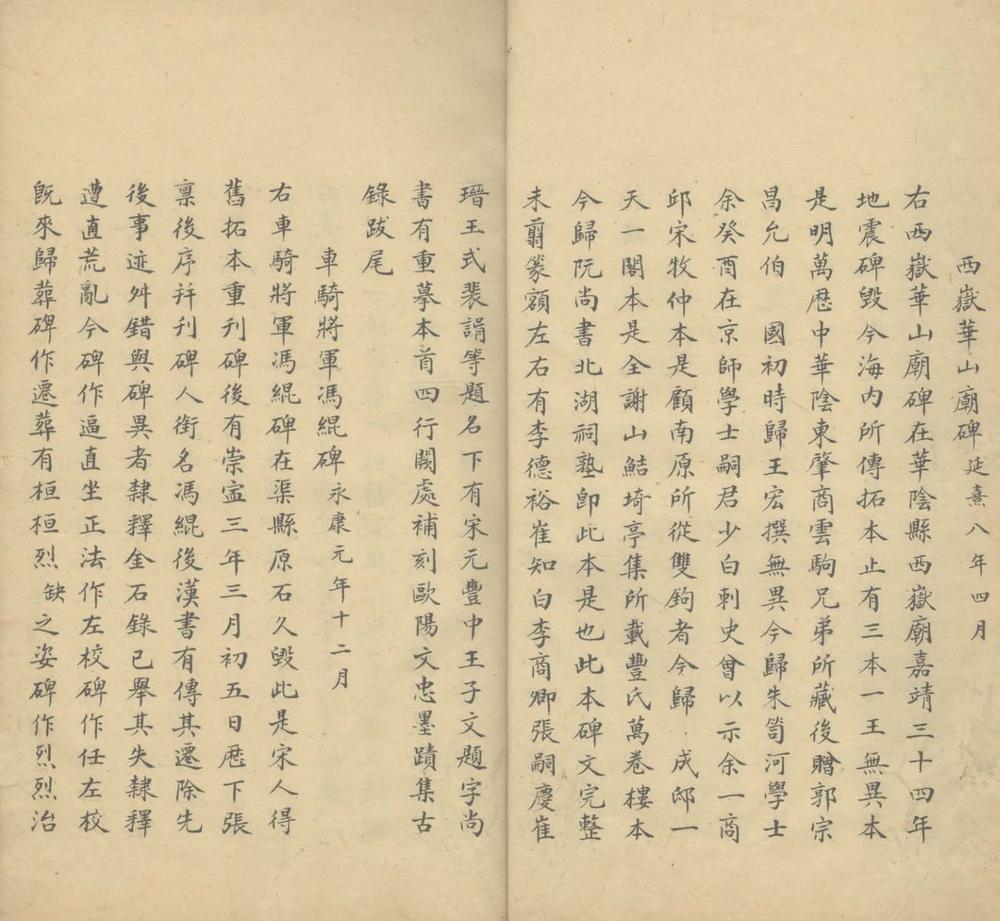 西嶽華山廟碑延熹八年四月
右西嶽華山廟碑在華陰縣西嶽廟嘉靖三十四年
地震碑毀今海内所傳拓本止有三本一王無異本
是明萬厯中華陰東肇商雲駒兄弟所藏後贈郭宗
昌允伯 國初時歸王宏撰無異今歸朱笥河學士
余癸酉在京師學士嗣君少白刺史曾以示余一商
邱宋牧仲本是顧南原所從雙鉤者今歸 成邸一
天一閣本是全謝山鮚埼亭集所載豐氏萬卷樓本
今歸阮尚書北湖祠塾卽此本是也此本碑文完整
未翦篆額左右有李德裕崔知白李商卿張嗣慶崔
瑨王式裴誚等題名下有宋元豐中王子文題字尚
書有重摹本首四行闕處補刻歐陽文忠墨蹟集古
錄跋尾
車騎將軍馮緄碑永康元年十二月
右車騎將軍馮緄碑在渠縣原石久毀此是宋人得
舊拓本重刊碑後有崇寍三年三月初五日厯下張
禀後序幷刊碑人銜名馮緄後漢書有傳其遷除先
後事迹舛錯與碑異者隸釋金石錄已舉其失隸釋
遭直荒亂今碑作逼直坐正法作左校碑作任左校
旣來歸葬碑作遷葬有桓桓烈缺之姿碑作烈烈治